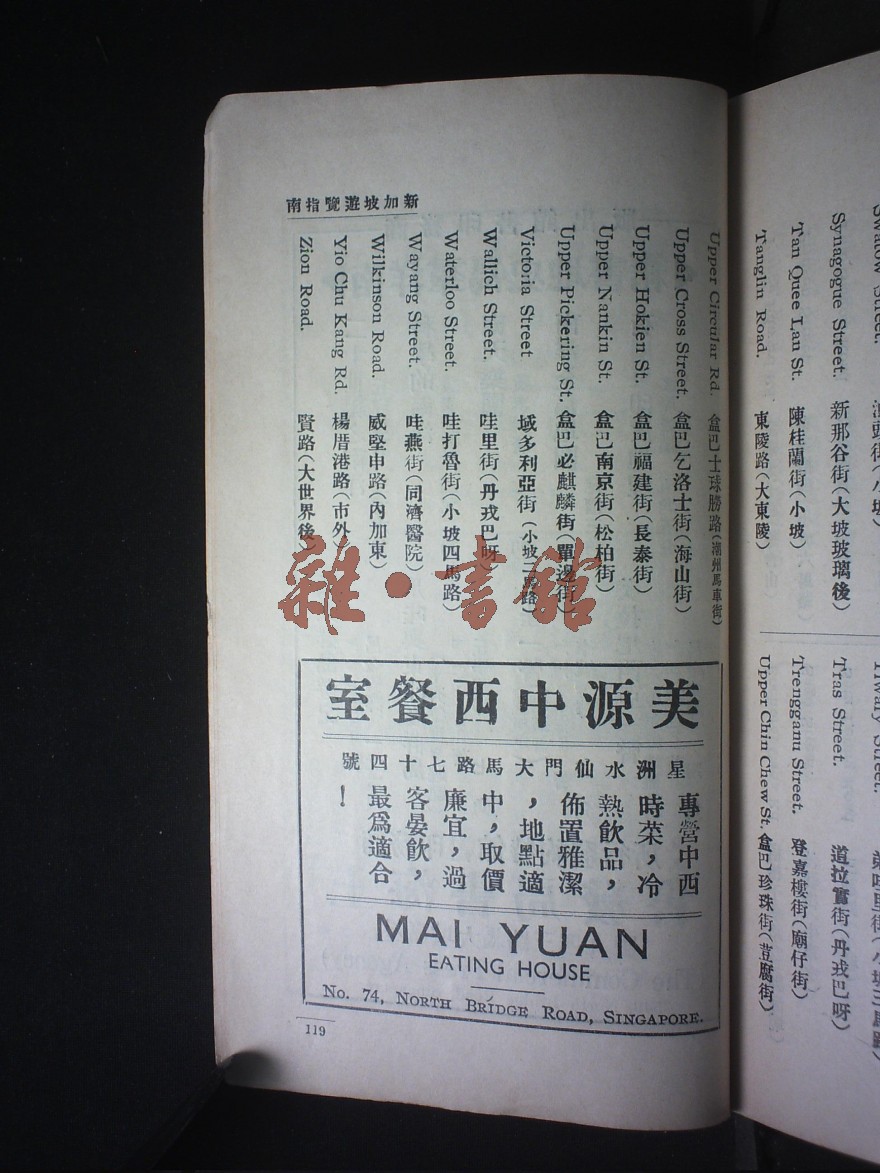 新加坡遊覽指南
Upper Circular Rd. 盒巴士球勝路(潮州馬車街)
Upper Cross Street. 盒巴乞洛士街(海山街)
Upper Hokien St. 盒巴福建街(長泰街)
Upper Nankin St. 盒巴南京街(松柏街)
Upper Pickering St. 盒巴必麒麟街(單邊街)
Victoria Street 域多利亞街(小坡二馬路)
Wallich Street. 哇里街(丹戎巴呀)
Waterloo Street. 哇打魯街(小坡四馬路)
Wayang Street. 哇燕街(同濟醫院)
Wilkinson Road. 威堅申路(內加東)
Yio Chu Kang Rd. 楊厝港路(市外
Zion Road. 賢路(大世界後)
雜·書館
美源中西餐室
星洲水仙門大馬路七十四號
專營中西
時菜,冷
熱飲品,
佈置雅潔
,地點適
中,取價
廉宜,過
客晏飲,
最爲適合
!
MAI YUAN
EATING HOUSE
No. 74, NORTH BRIDGE ROAD, SINGAPORE.
119
Swatow Street.
Synagogue Street. 新那谷街(大坡玻璃後)
Tan Quee Lan St. 陳桂蘭街(小坡)
Tanglin Road. 東陵路(大東陵)
Tras Street. 道拉實街(丹戎巴呀)
Trengganu Street. 登嘉樓街(廟仔街)
Upper Chin Chew St. 盒巴珍珠街(荳腐街)